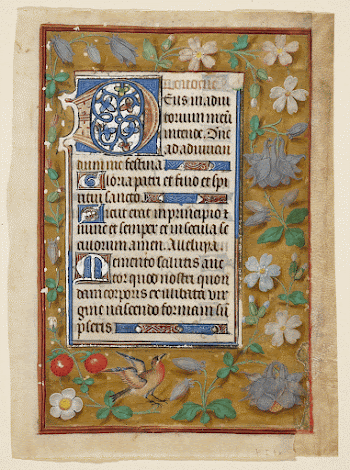 Deus in adiu
torium meū
intende. Dñe
ad adiuuan
dum me festina
Gloria patri et filio et spi
ritui sancto.
Sicut erat in principio z
nunc et semper et in secula se
culorum amen. Alleluya
Memento salutis auc
tor quod nostri quon
dam corporis ex illibata vir
gine nascendo formam sū
pseris